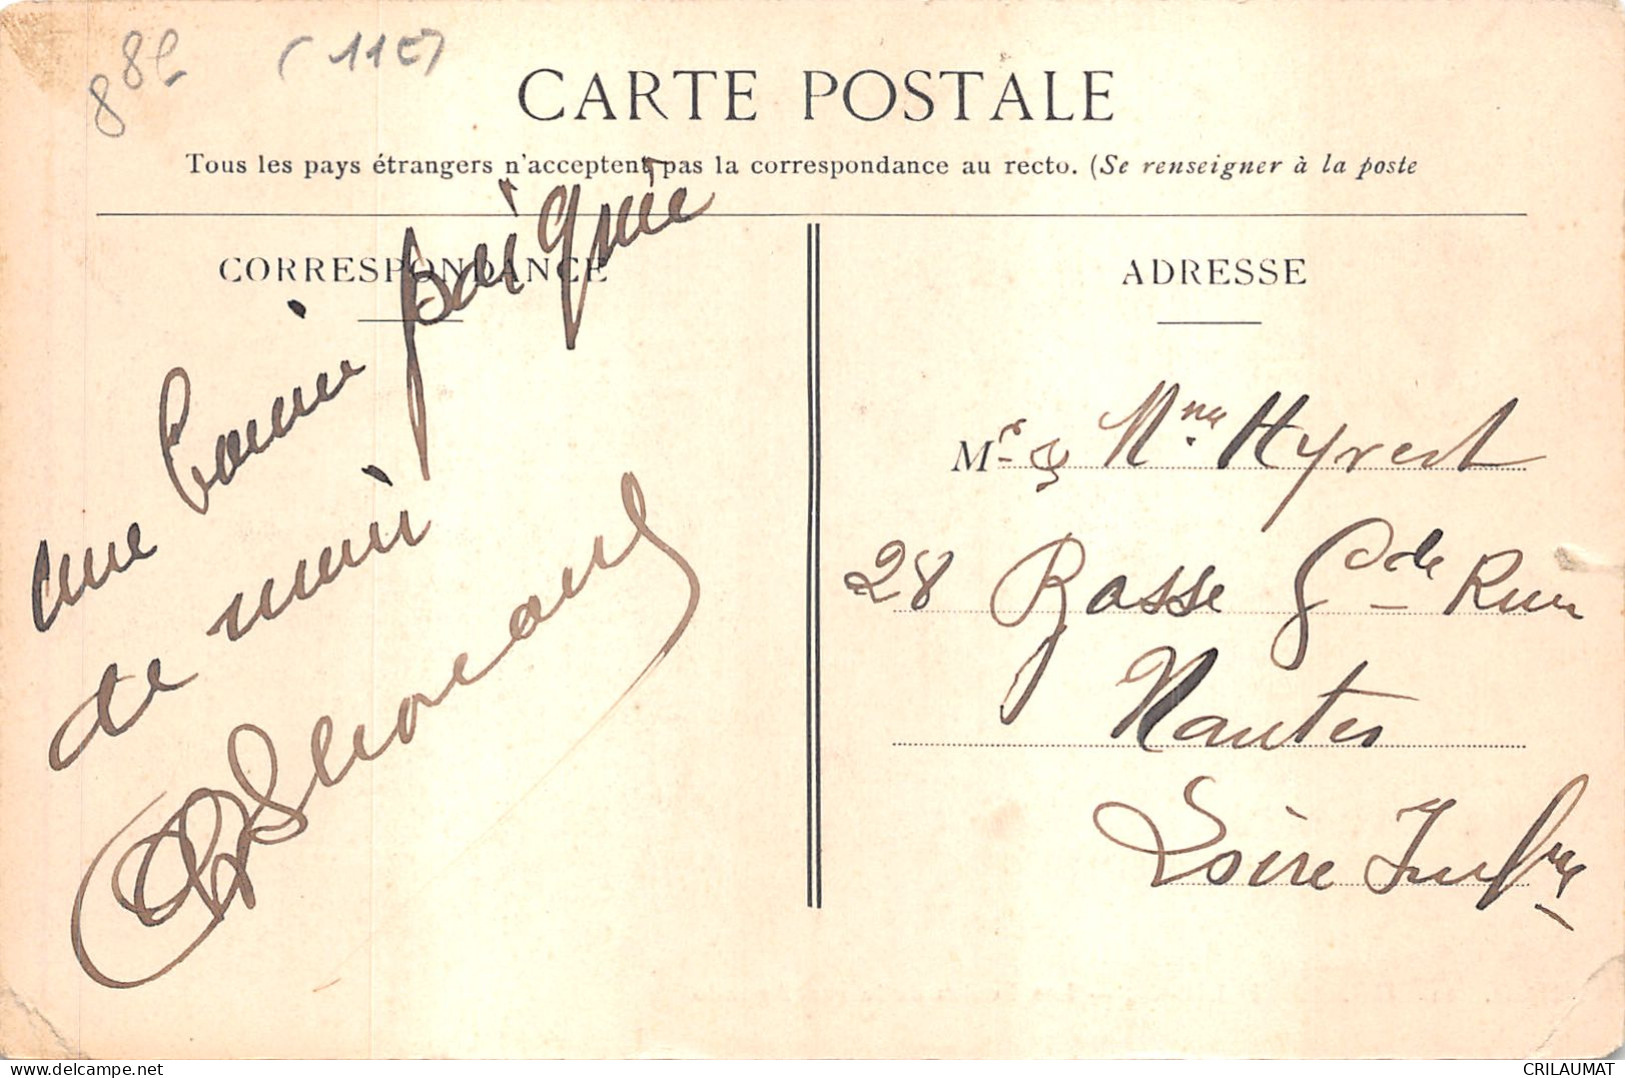 88e (11E)
CARTE POSTALE
Tous les pays étrangers n'acceptent pas la correspondance au recto. (Se renseigner à la poste
CORRESPONDANCE
une bonne poignée
de main
ADRESSE
Mr & Mme Hyvert
28 Basse Gde Rue
Nantes
Loire Infre
CRILAUMAT